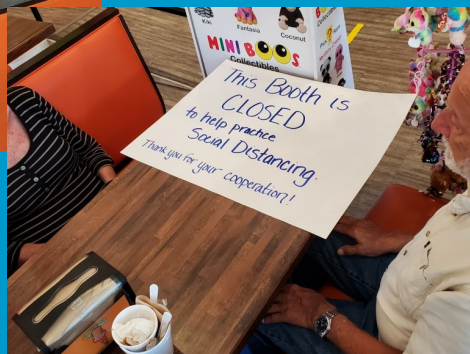 Kiki
Fantasia
Coconut
MINI BOOS
Collectibles
This Booth is
CLOSED
to help practice
Social Distancing.
Thank you for your cooperation!